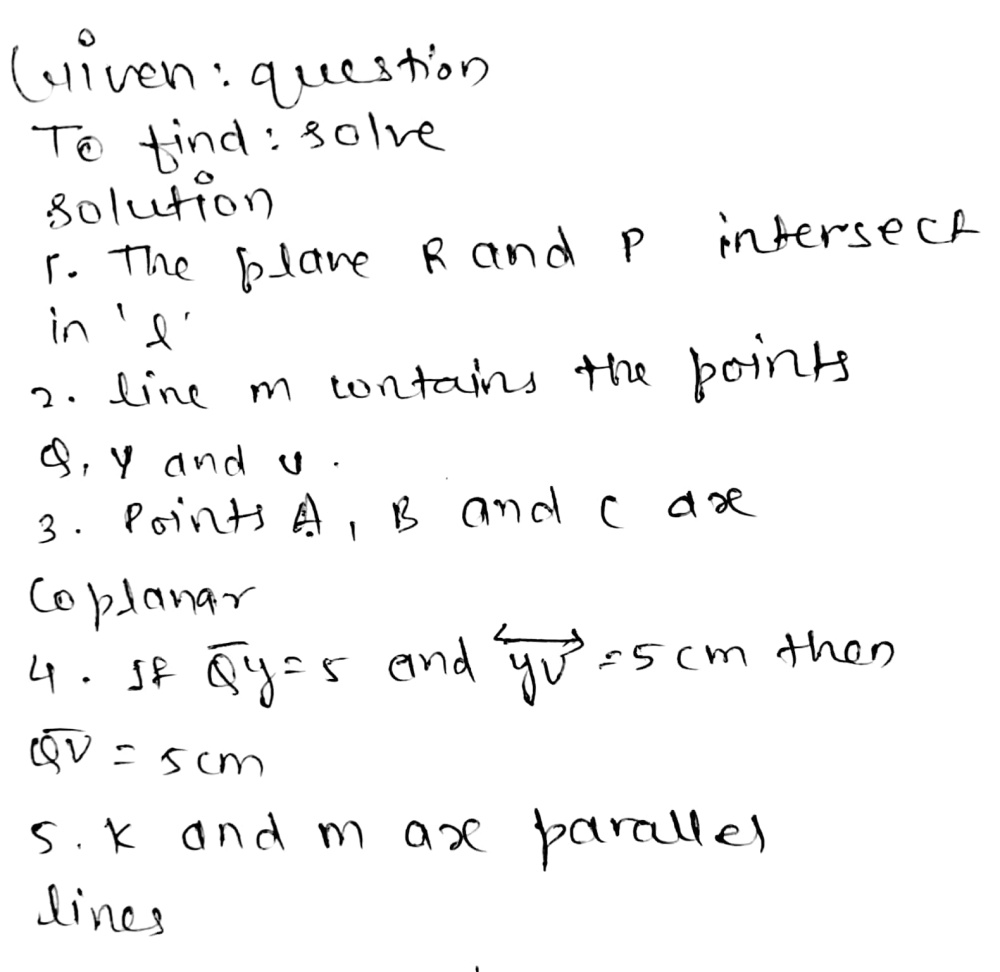 Given: question
To find: solve
solution
1. The plane R and P intersect
in 'l'
2. line m contains the points
Q, y and v.
3. Points A, B and C are
Coplanar
4. If Q̅y̅ = 5 and y͟v = 5 cm then
Q̅V̅ = 5 cm
5. K and m are parallel
lines